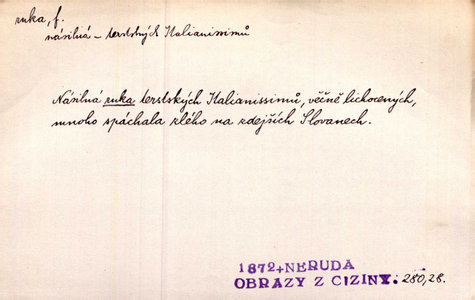 ruka, f.
násilná – terstských Italianissimů
Násilná ruka terstských Italianissimů, věčně lichocených,
mnoho spáchala zlého na zdejších Slovanech.
1872+NERUDA
OBRAZY Z CIZINY. 280,28.